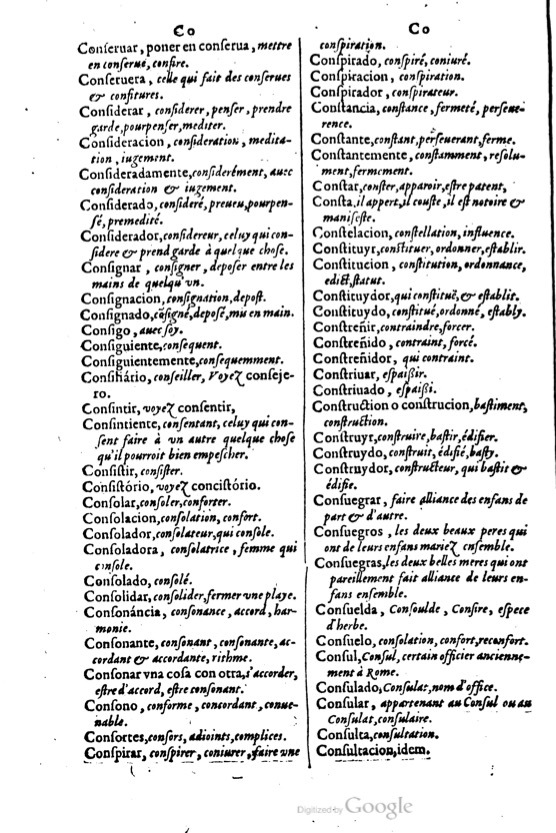 Co
Conſeruar, poner en conſerua, mettre
en conſerue, confire.
Conſeruera, celle qui fait des conſerues
& confitures.
Conſiderar, conſiderer, penſer, prendre
garde, pourpenſer, mediter.
Conſideracion, conſideration, medita-
tion, iugement.
Conſideradamente, conſiderément, auec
conſideration & iugement.
Conſiderado, conſideré, preueu, pourpen-
ſé, premedité.
Conſiderador, conſidereur, celuy qui con-
ſidere & prend garde à quelque choſe.
Conſignar, conſigner, depoſer entre les
mains de quelqu'vn.
Conſignacion, conſignation, depoſt.
Conſignado, cõſigné, depoſé, mis en main.
Conſigo, auec ſoy.
Conſiguiente, conſequent.
Conſiguientemente, conſequemment.
Conſiliário, conſeiller, Voyez conſeje-
ro.
Conſintir, voyez conſentir,
Conſintiente, conſentant, celuy qui con-
ſent faire à vn autre quelque choſe
qu'il pourroit bien empeſcher.
Conſiſtir, conſiſter.
Conſiſtório, voyez conciſtório.
Conſolar, conſoler, conforter.
Conſolacion, conſolation, confort.
Conſolador, conſolateur, qui conſole.
Conſoladora, conſolatrice, femme qui
conſole.
Conſolado, conſolé.
Conſolidar, conſolider, fermer vne playe.
Conſonáncia, conſonance, accord, har-
monie.
Conſonante, conſonant, conſonante, ac-
cordant & accordante, rithme.
Conſonar vna coſa con otra, s'accorder,
eſtre d'accord, eſtre conſonant.
Conſono, conforme, concordant, conue-
nable.
Conſortes, conſors, adioints, complices.
Conſpirar, conſpirer, coniurer, faire vne
Co
conſpiration.
Conſpirado, conſpiré, coniuré.
Conſpiracion, conſpiration.
Conſpirador, conſpirateur.
Conſtancia, conſtance, fermeté, perſeue-
rence.
Conſtante, conſtant, perſeuerant, ferme.
Conſtantemente, conſtamment, reſolu-
ment, fermement.
Conſtar, conſter, apparoir, eſtre patent,
Conſta, il appert, il couſte, il eſt notoire &
manifeſte.
Conſtelacion, conſtellation, influence.
Conſtituyr, conſtituer, ordonner, eſtablir.
Conſtitucion, conſtitution, ordonnance,
edict, ſtatut.
Conſtituydor, qui conſtituë, & eſtablit.
Conſtituydo, conſtitué, ordonné, eſtably.
Conſtreñir, contraindre, forcer.
Conſtreñido, contraint, forcé.
Conſtreñidor, qui contraint.
Conſtriuar, eſpaißir.
Conſtriuado, eſpaißi.
Conſtruction o conſtrucion, baſtiment,
conſtruction.
Conſtruyr, conſtruire, baſtir, édifier.
Conſtruydo, conſtruit, édifié, baſty.
Conſtruydor, conſtructeur, qui baſtit &
édifie.
Conſuegrar, faire alliance des enfans de
part & d'autre.
Conſuegros, les deux beaux peres qui
ont de leurs enfans mariez enſemble.
Conſuegras, les deux belles meres qui ont
pareillement fait alliance de leurs en-
fans enſemble.
Conſuelda, Conſoulde, Conſire, eſpece
d'herbe.
Conſuelo, conſolation, confort, reconfort.
Conſul, Conſul, certain officier ancienne-
ment à Rome.
Conſulado, Conſulat, nom d'office.
Conſular, appartenant au Conſul ou au
Conſulat, conſulaire.
Conſulta, conſultation.
Conſultacion, idem.
Digitized by Google